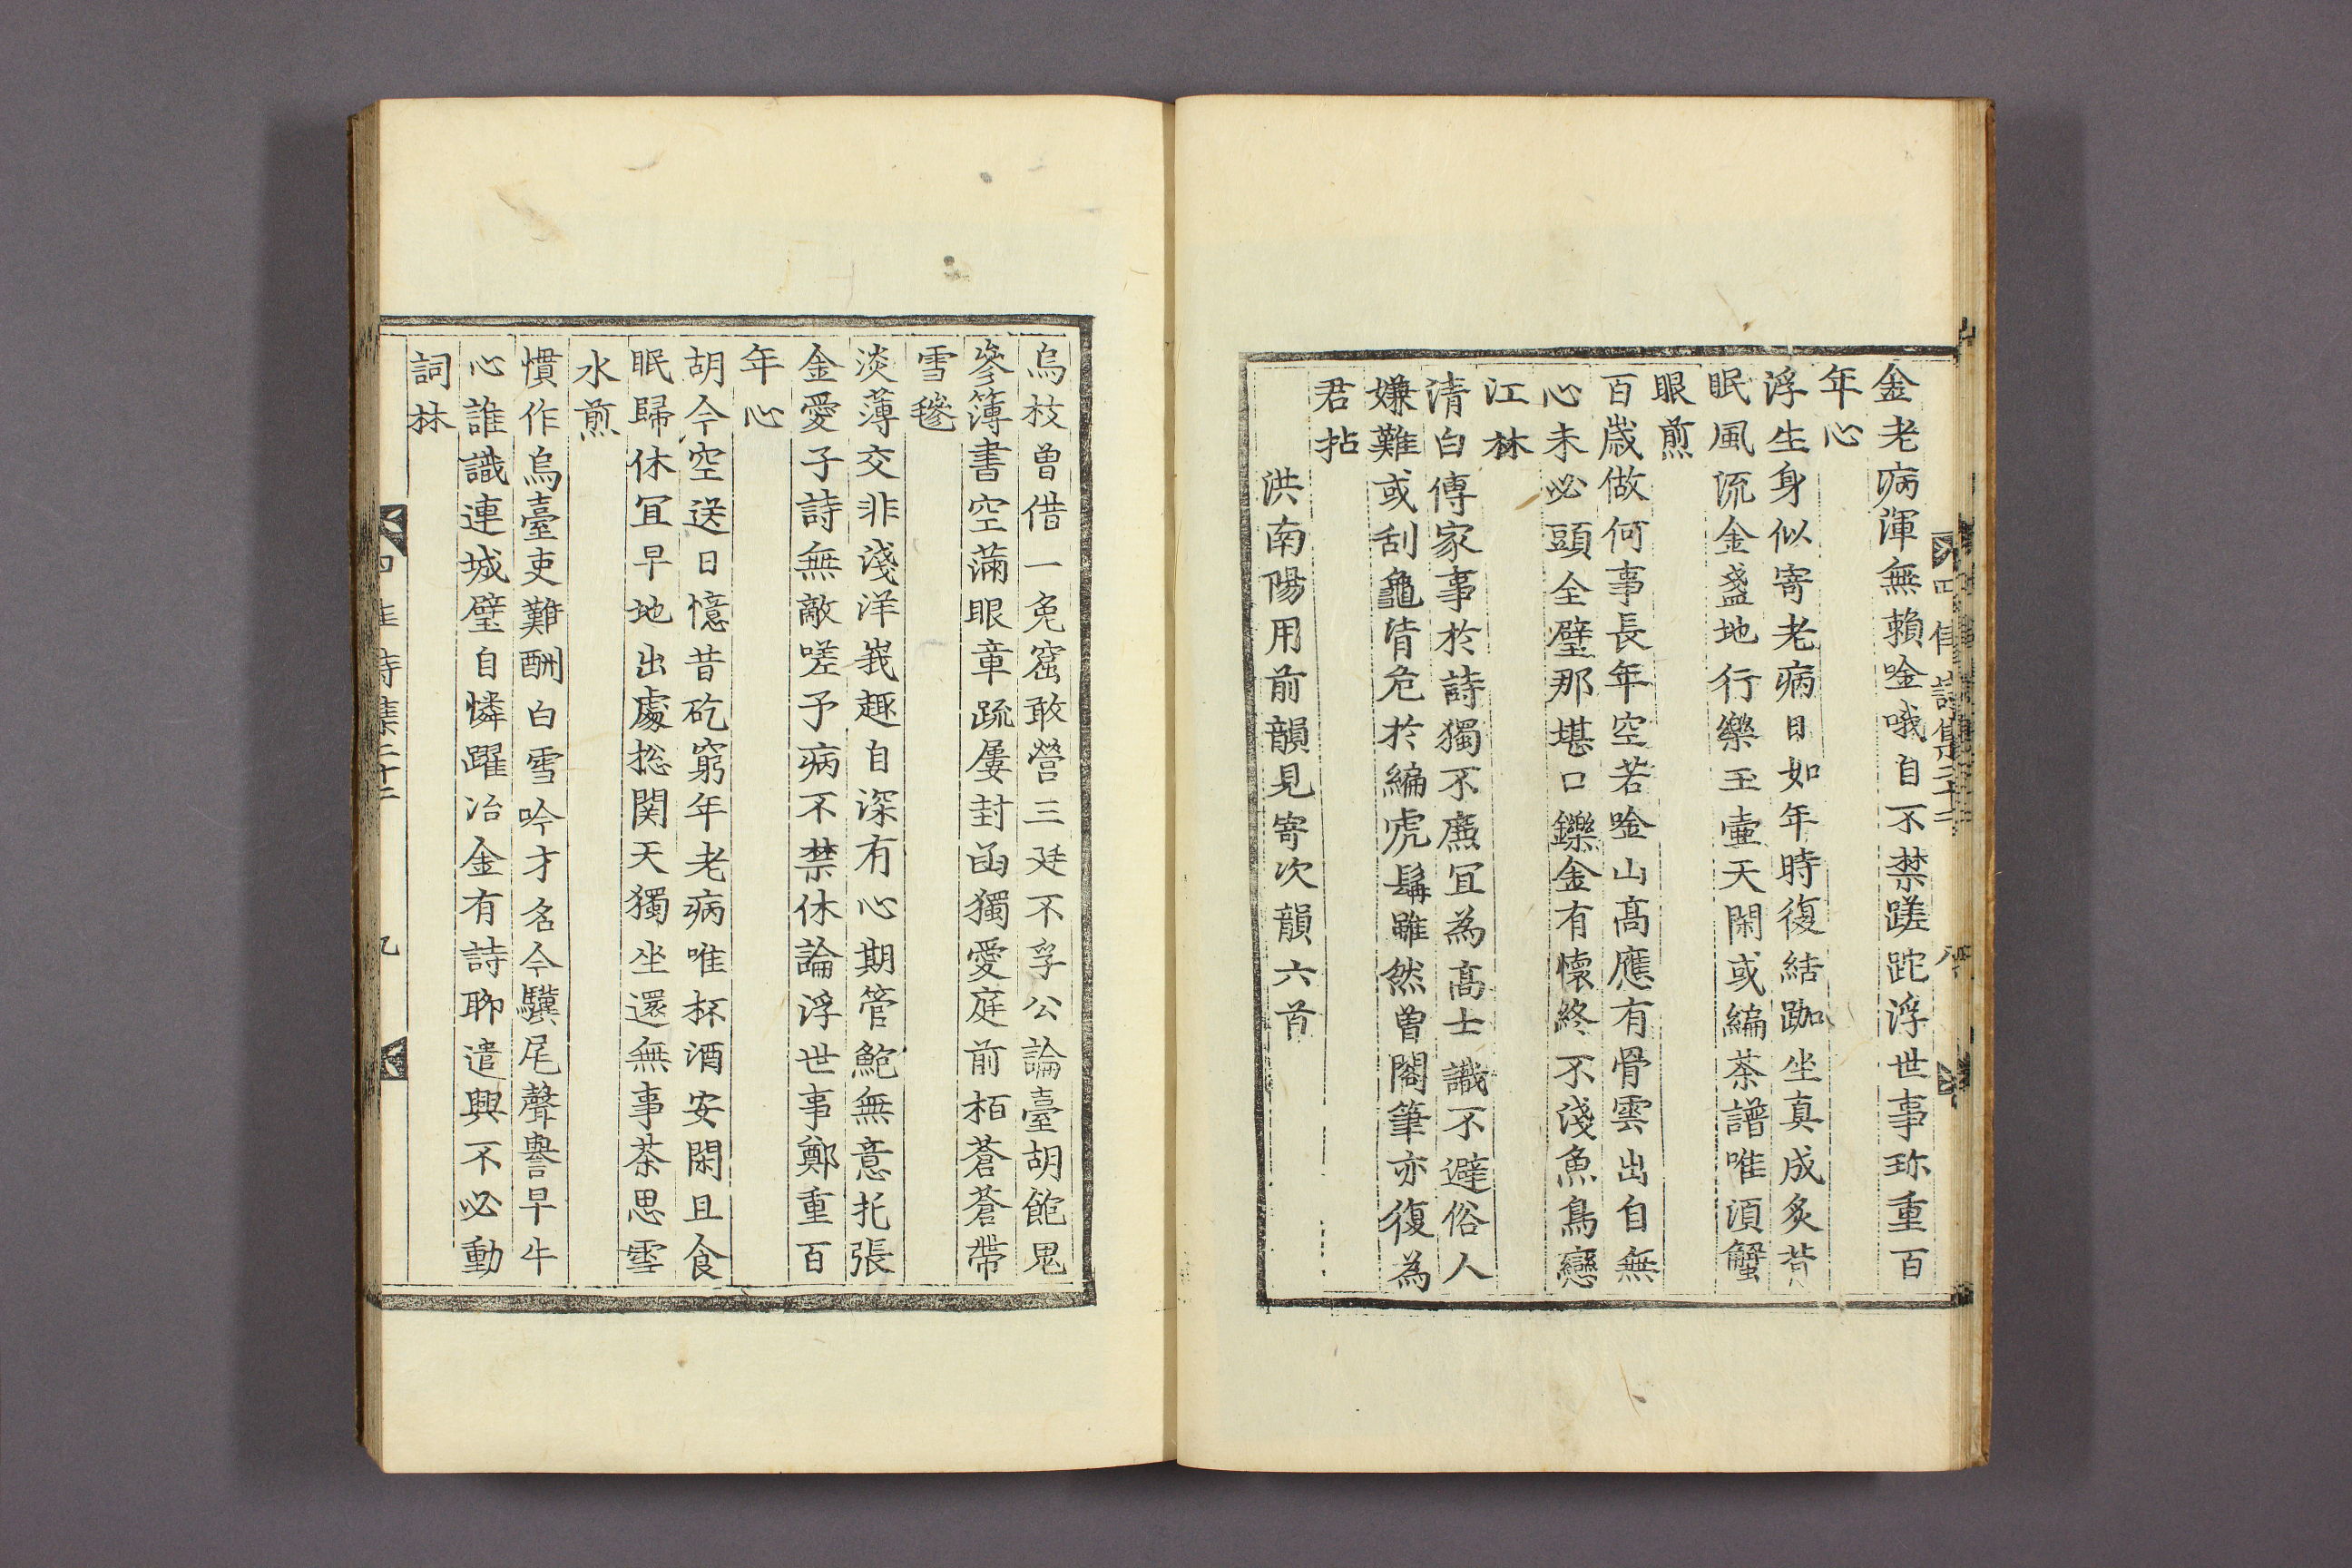 金老病渾無賴唫哦自不禁蹉跎浮世事珎重百
年心
浮生身似寄老病日如年時復結跏坐真成炙背
眠風流金盞地行樂玉壷天閑或編茶譜唯湏蟹
眼煎
百歲做何事長年空若唫山高應有骨雲出自無
心未必頭全璧那堪口鑠金有懷終不淺魚鳥戀
江林
清白傳家事於詩獨不廉冝為高士識不避俗人
嫌難或刮龜背危於編虎鬚雖然曾閣筆亦復為
君拈
洪南陽用前韻見寄次韻六首
四佳詩集二十二 八
烏枝曾借一兔窟敢營三廷不孚公論臺胡飽鬼
參簿書空滿眼章疏屢封函獨愛庭前栢蒼蒼帶
雪毿
淡薄交非淺洋峩趣自深有心期管鮑無意托張
金愛子詩無敵嗟予病不禁休論浮世事鄭重百
年心
胡今空送日憶昔矻窮年老病唯杯酒安閑且食
眠歸休冝早地出處捴関天獨坐還無事茶思雪
水煎
慣作烏臺吏難酬白雪吟才名今驥尾聲譽早牛
心誰識連城璧自憐躍冶金有詩聊遣興不必動
詞林
四佳詩集二十二 九